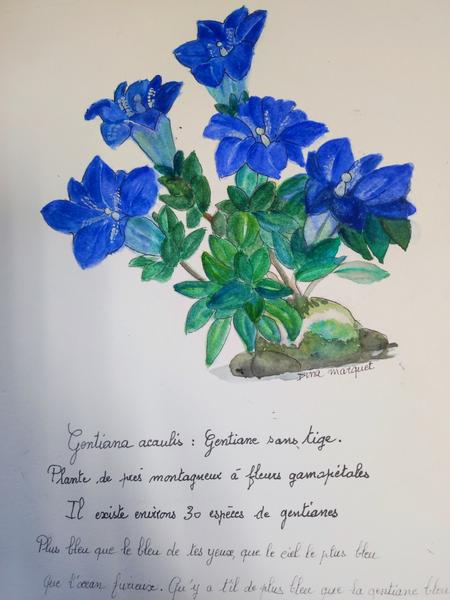 Dina Marquet
Gentiana acaulis : Gentiane sans tige.
Plante de près montagneux à fleurs gamopétales
Il existe environs 30 espèces de gentianes
Plus bleu que le bleu de tes yeux, que le ciel le plus bleu
que l'océan furieux. Qu'y a t'il de plus bleu que la gentiane bleu